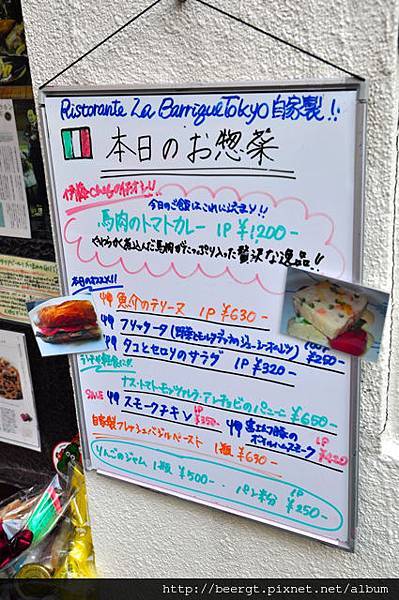 Ristorante La Barrique Tokyo 自家製!!
本日のお惣菜
伊藤chefのイチオシ!!
今日のご飯はこれに決まり!!
馬肉のトマトカレー 1P ¥1,200-
やわらかく煮込んだ馬肉がたっぷり入った贅沢な逸品!!
本日のおススメ!!
魚介のテリーヌ 1P ¥630-
フリッタータ
¥250-
タコとセロリのサラダ 1P ¥320-
ランチや軽食に!!
ナス・トマト・モッツァレラ・アンチョビのパニーニ ¥650-
スモークチキン 1P ¥350-
富士幻豚のボイルハムスモーク 1P
自家製フレッシュバジルペースト 1瓶 ¥630-
りんごのジャム 1瓶 ¥500- パン粉 1P ¥250-
http://beergt.pixnet.net/album